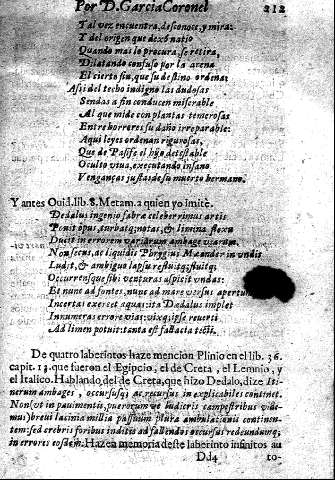 Por D. Garcia Coronel 212
Tal vez encuentra, desconoce, y mira:
Y del origen que dexò natio
Quando mas lo procura, se retira,
Dilatando confuso por la arena
El cierto fin, que su destino ordena:
Assi del techo indigno las dudosas
Sendas a fin conducen miserable
Al que mide con plantas temerosas
Entre horrores su daño irreparable:
Aqui leyes ordenan rigurosas,
Que de Pasife el hijo detestable
Oculto viua, executando insano
Venganças justas de su muerto hermano.
Y antes Ouid. lib. 8. Metam. a quien yo imitè.
Dædalus ingenio fabræ celeberrimus artis
Ponit opus, turbatq; notas, & limina flexu
Ducit in errorem variarum ambage viarum.
Non secus, ac liquidis Phrygius Mæander in vndis
Ludit, & ambiguo lapsu refluitq; fluitq;
Occurrensque sibi venturas aspicit vndas:
Et nunc ad fontes, nunc ad mare versus
Incertas exercet aquas: ita Dædalus implet
Innumeras errore vias: vixq; ipse reuerti
Ad limen potuit: tanta est fallacia tecti.
De quatro laberintos haze mencion Plinio en el lib. 36.
capit. 13. que fueron el Egipcio, el de Creta, el Lemnio, y
el Italico. Hablando del de Creta, que hizo Dedalo, dize Iti-
nerum ambages, occursusq; ac recursus in explicabiles continet.
Non (vt in pauimentis, puerorum ve ludicris campestribus vide-
mus) breui lacinia millia passuum plura ambulationis continen-
tem: sed crebris foribus inditis ad fallendos occursus redeundumq;
in errores eosdem. Hazen memoria deste laberinto infinitos au
Dd4 to-